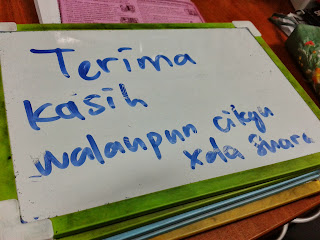 Terima
kasih
walaupun cikgu
xda suara